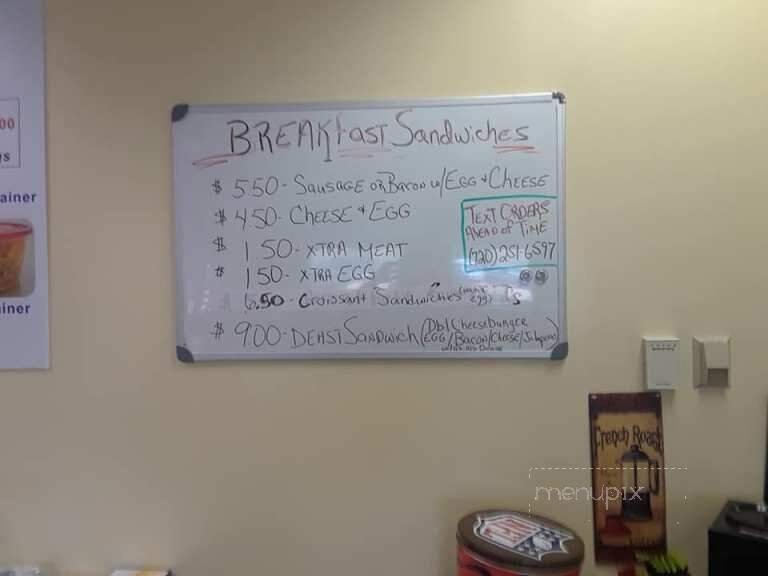 00
s
ainer
iner
BREAKfast Sandwiches
$ 550- Sausage or Bacon w/ EGG + CHEESE
$ 450- CHEESE + EGG
$ 150- XTRA MEAT
$ 150- XTRA EGG
6.50- Croissant Sandwiches (meat egg)
$ 900- Sandwich (Dbl Cheeseburger
EGG/Bacon/Cheese/Jalapeno)
TEXT ORDERS
AHEAD of TIME
(720) 251-6597
French Roast
menupix